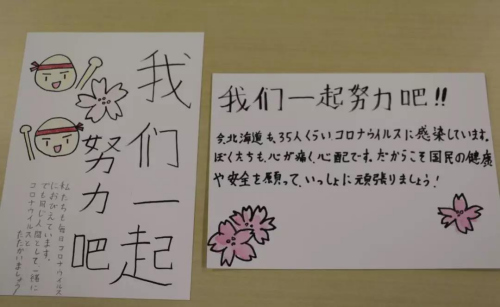 我们一起
努力吧
私たちも毎日コロナウイルス
におびえています。
でも同じ人間として一緒に
コロナウイルスと
たたかいましょう!
我们一起努力吧!!
今、北海道も、35人くらいコロナウイルスに感染しています。
ぼくたちも、心が痛く、心配です。だからこそ国民の健康
や安全を願って、いっしょに頑張りましょう!